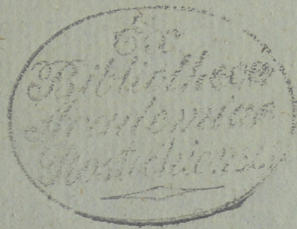 Ex
Bibliotheca
Academica
Rostochiensi